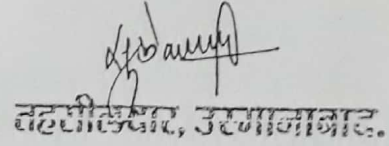 तहसीलदार, उस्मानाबाद.